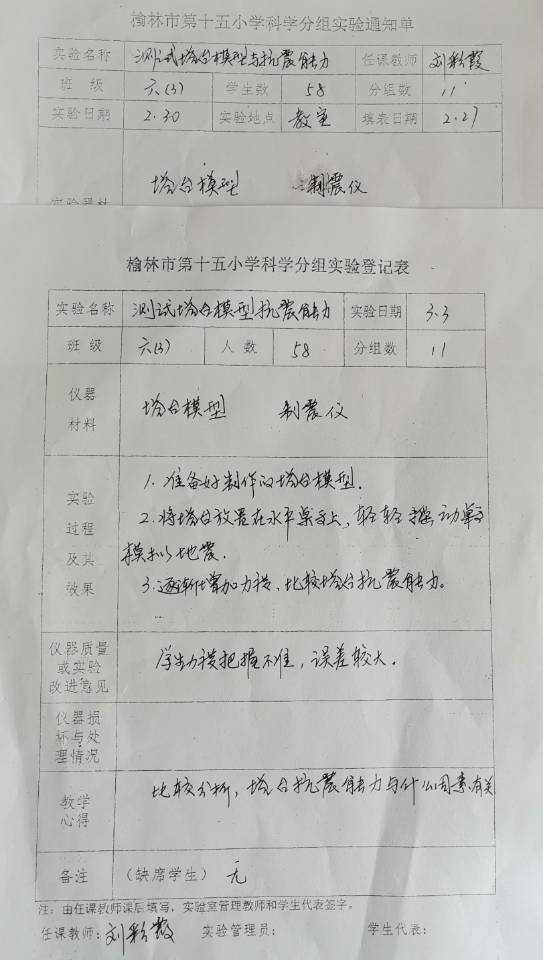 榆林市第十五小学科学分组实验通知单
实验名称 测试塔台模型与抗震能力 任课教师 刘彩霞
班 级 六(3) 学生数 58 分组数 11
实验日期 2.30 实验地点 教室 填表日期 2.27
塔台模型 制震仪
实验器材
榆林市第十五小学科学分组实验登记表
实验名称 测试塔台模型抗震能力 实验日期 3.3
班 级 六(3) 人 数 58 分组数 11
仪器
材料
塔台模型 制震仪
实验
过程
及其
效果
1. 准备好制作的塔台模型.
2. 将塔台放置在水平桌子上，轻轻摇动桌子
模拟地震.
3. 逐渐增加力度，比较塔台抗震能力。
仪器质量
或实验
改进意见
学生力度把握不准，误差较大.
仪器损
坏与处
理情况
教学
心得
比较分析，塔台抗震能力与什么因素有关
备注 （缺席学生） 无
注：由任课教师课后填写，实验室管理教师和学生代表签字。
任课教师：刘彩霞 实验管理员： 学生代表：